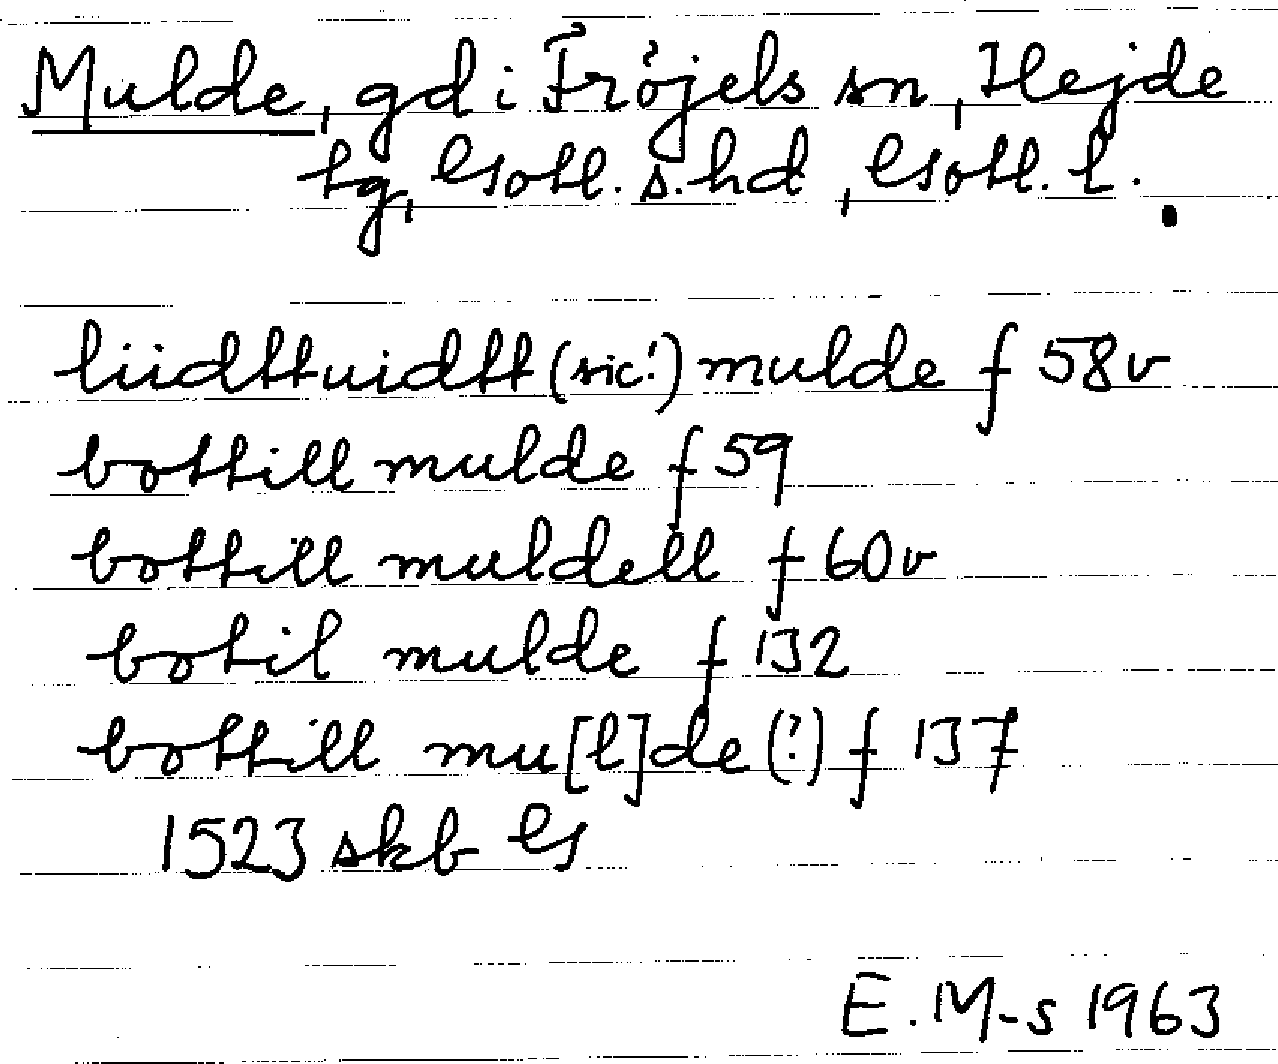 Mulde, gd i Fröjels sn, Hejde
tg, Gotl. s. hd, Gotl. l.
liidttuidtt (sic!) mulde f 58v
bottill mulde f 59
bottill muldell f 60v
botil mulde f 132
bottill mu[l]de (?) f 137
1523 skb G
E. M-s 1963